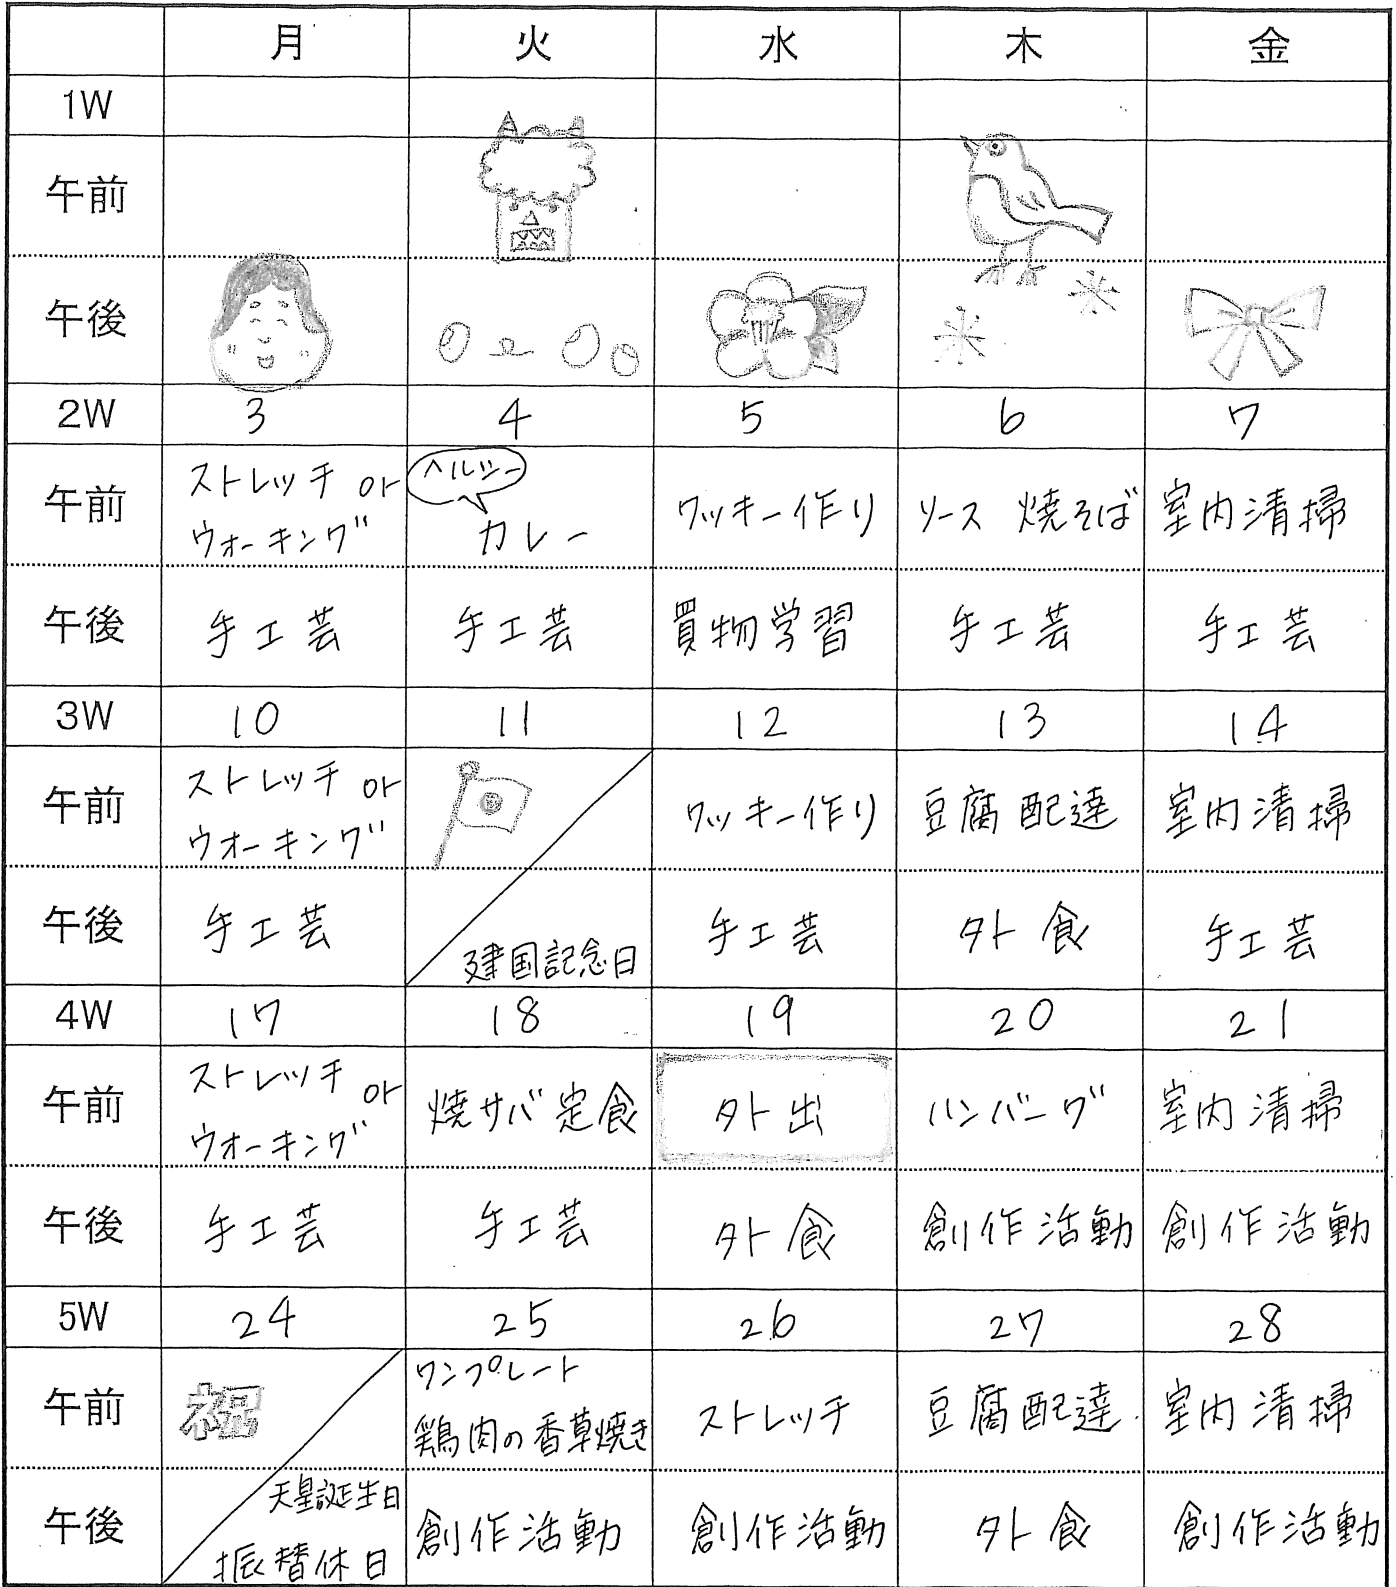 月 火 水 木 金
1W
午前
午後
2W 3 4 5 6 7
午前 ストレッチ or ウォーキング ヘルシー カレー クッキー作り ソース 焼そば 室内清掃
午後 手工芸 手工芸 買物学習 手工芸 手工芸
3W 10 11 12 13 14
午前 ストレッチ or ウオーキング クッキー作り 豆腐配達 室内清掃
午後 手工芸 建国記念日 手工芸 外食 手工芸
4W 17 18 19 20 21
午前 ストレッチ or ウオーキング 焼サバ定食 外出 ハンバーグ 室内清掃
午後 手工芸 手工芸 外食 創作活動 創作活動
5W 24 25 26 27 28
午前 祝 ワンプレート 鶏肉の香草焼き ストレッチ 豆腐配達 室内清掃
午後 天皇誕生日 振替休日 創作活動 創作活動 外食 創作活動